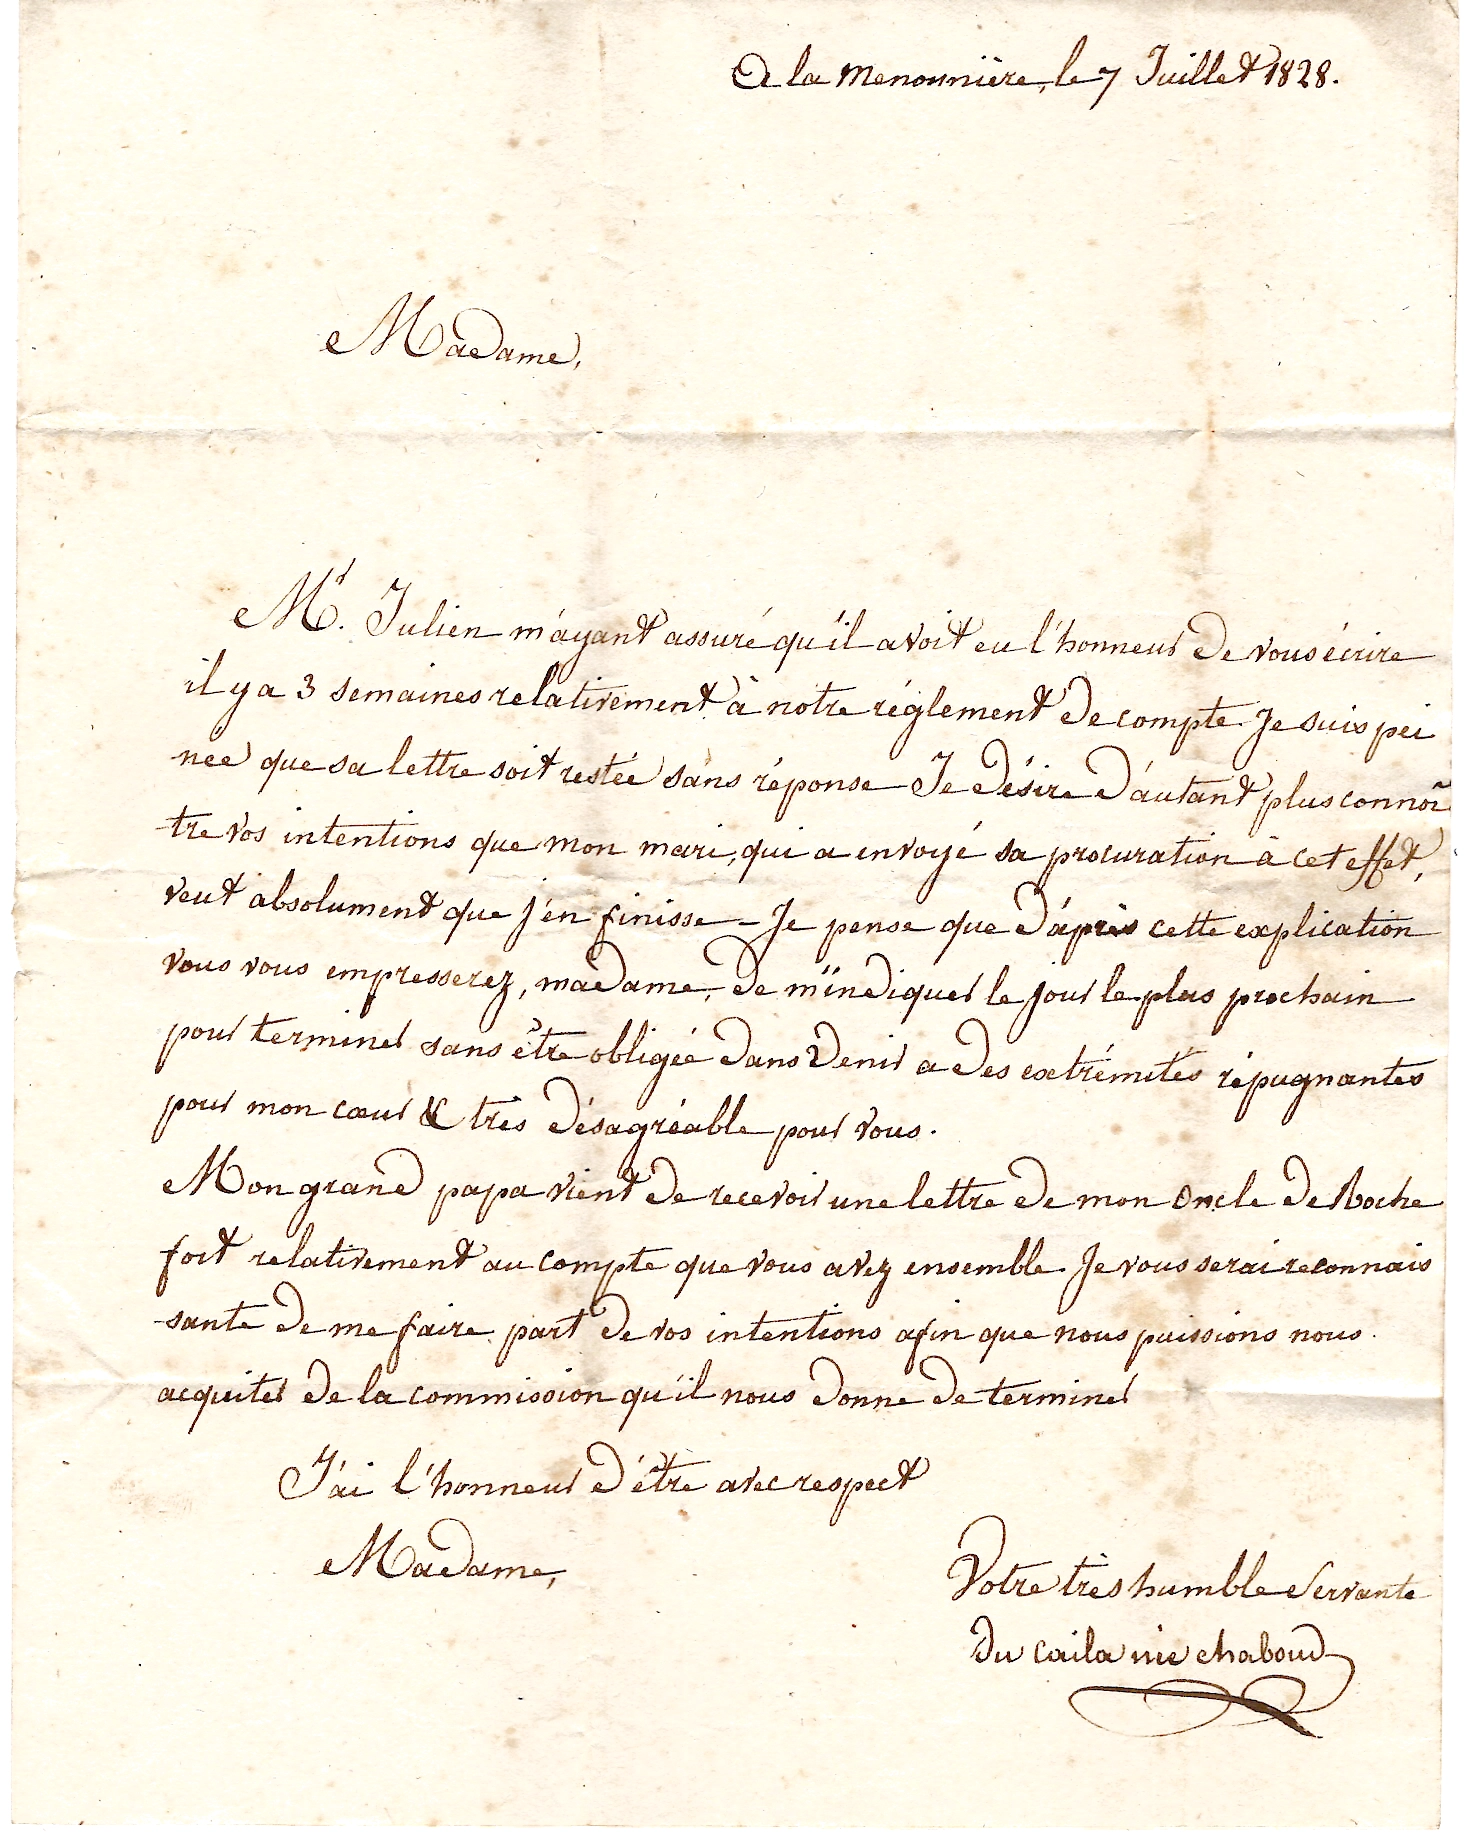 A la menounière, le 7 Juillet 1828.
Madame,
Mr. Julien m'ayant assuré qu'il avoit eu l'honneur de vous écrire
il y a 3 semaines relativement à notre réglement de compte Je suis pei
née que sa lettre soit restée sans réponse Je désire d'autant plus connoî
tre vos intentions que mon mari, qui a envoyé sa procuration à cet effet,
veut absolument que j'en finisse - Je pense que d'après cette explication
vous vous empresserez, madame, de m'indiquer le jour le plus prochain
pour terminer sans être obligée dans venir a des extrémités répugnantes
pour mon cœur & très désagréable pour vous.
Mon grand papa vient de recevoir une lettre de mon oncle de Roche
fort relativement au compte que vous avez ensemble. Je vous serai reconnais
sante de me faire part de vos intentions afin que nous puissions nous
acquiter de la commission qu'il nous donne de terminer
J'ai l'honneur d'être avec respect
Madame,
Votre très humble Servante
du caila née chaboud